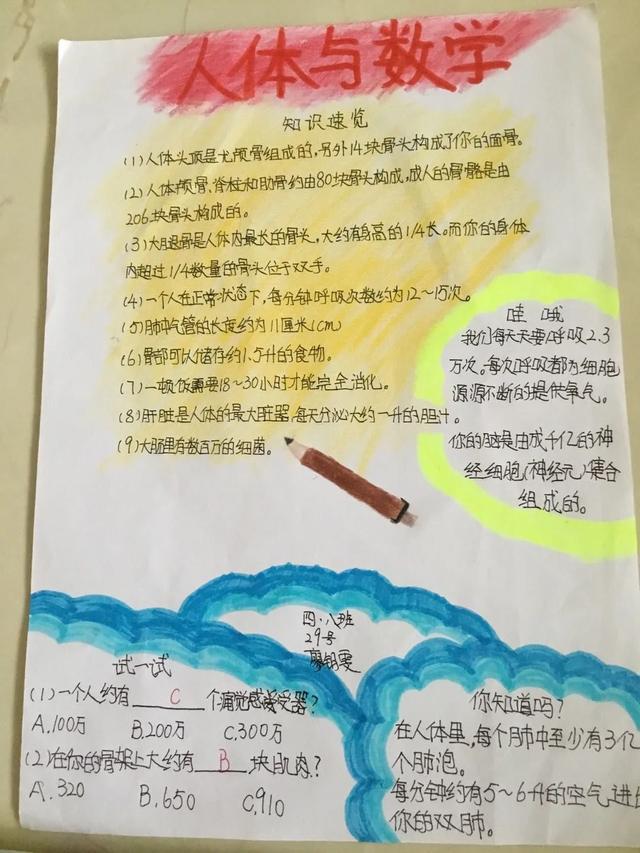 人体与数学
知识速览
(1)人体头顶是尤颅骨组成的,另外14块骨头构成了你的面骨。
(2)人体颅骨、脊柱和助骨约由80块骨头构成,成人的骨骼是由
206块骨头构成的。
(3)大腿骨是人体内最长的骨头,大约有身高的1/4长。而你的身体
内超过1/4数量的骨头位于双手。
(4)一个人在正常状态下,每分钟呼吸次数约为12~15次。
(5)肺中气管的长度约为11厘米1cm
(6)胃部可以储存约1.5升的食物。
(7)一顿饭需要18~30小时才能完全消化。
(8)肝脏是人体的最大脏器,每天分泌大约一升的胆汁。
(9)大肠里有数百万的细菌。
哇哦
我们每天天要呼吸2.3
万次。每次呼吸都为细胞
源源不断的提供氧气。
你的脑是由成千亿的神
经细胞(神经元)集合
组成的。
四·八班
29号
试一试
(1)一个人约有 C 个痛觉感受器?
A.100万 B.200万 C.300万
(2)在你的骨架上大约有 B 块肌肉?
A.320 B.650 C.910
你知道吗?
在人体里,每个肺中至少有3亿
个肺泡。
每分钟约有5~6升的空气进出
你的双肺。